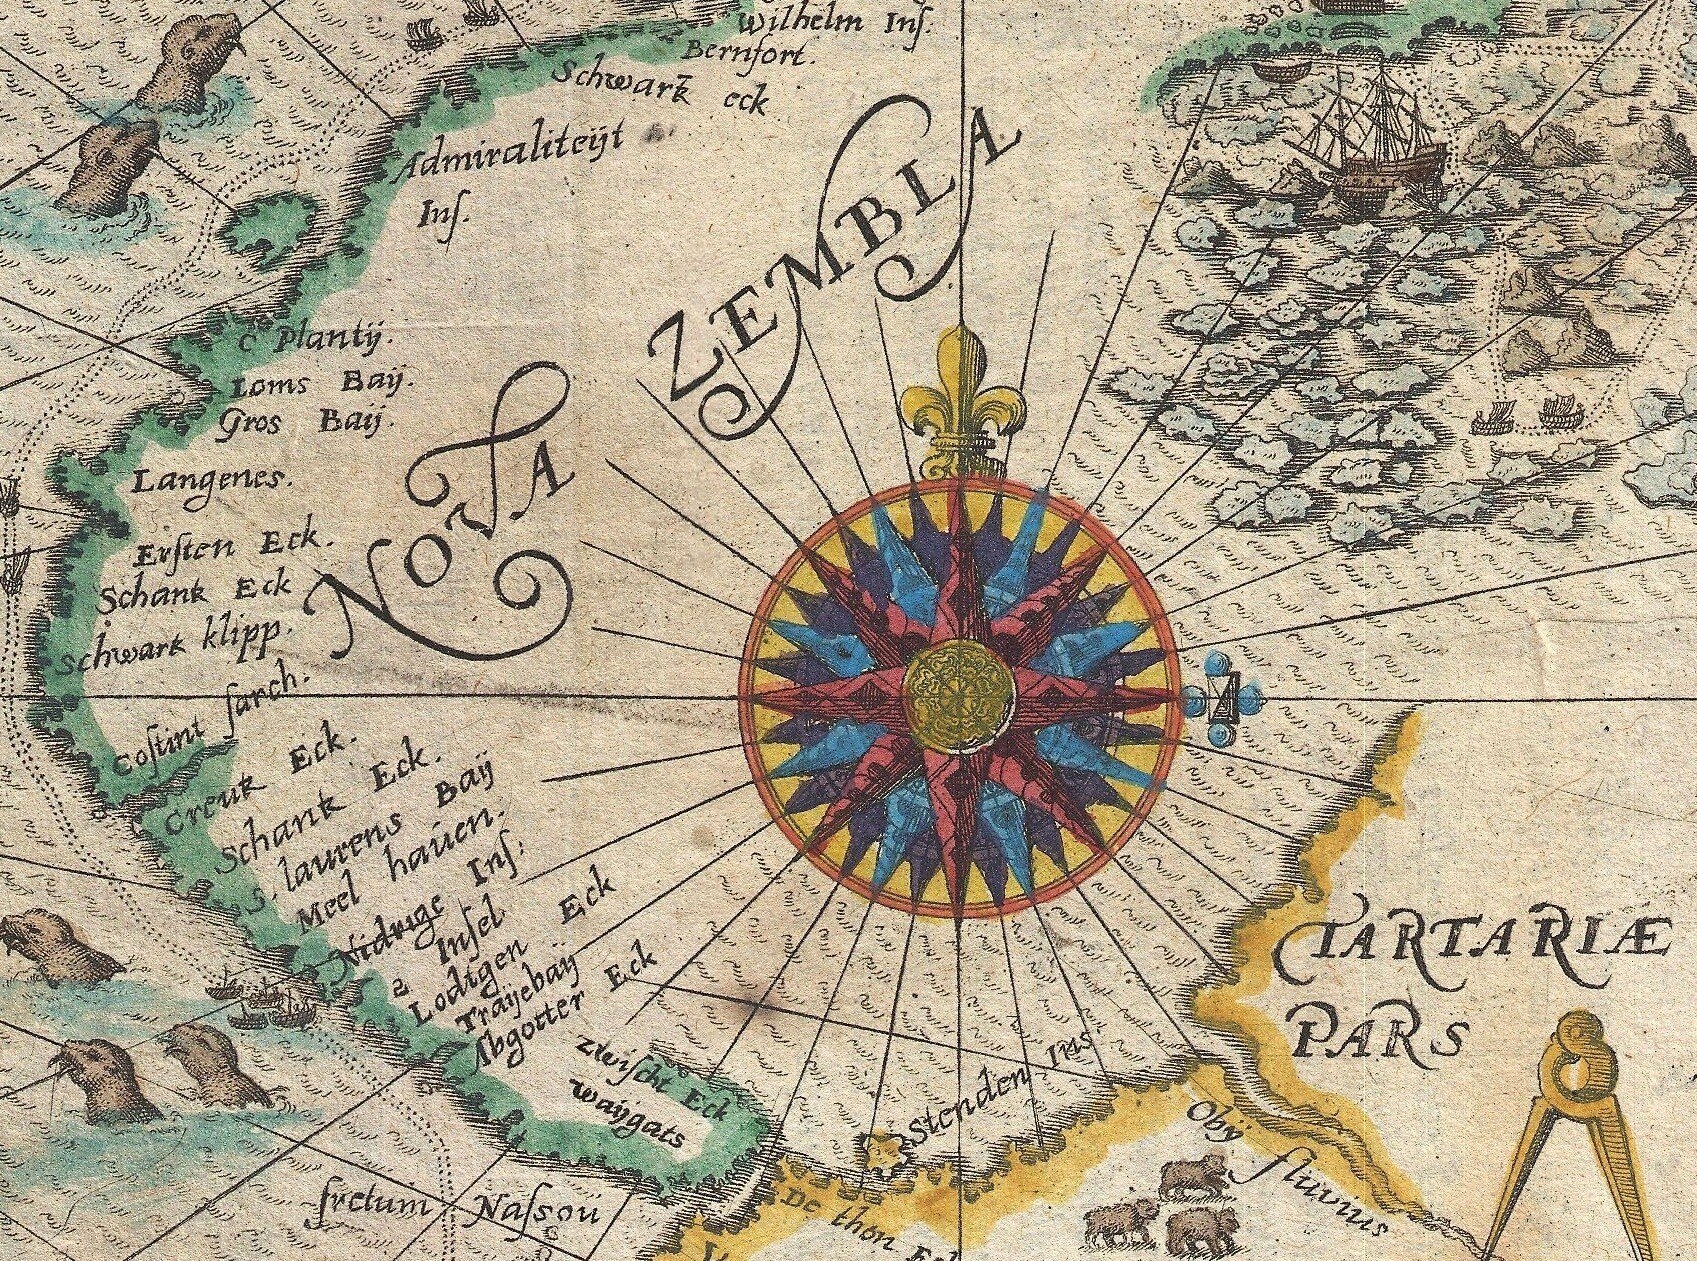 Wilhelm Inſ.
Bernfort.
Schwartz eck
Admiraliteijt
Inſ.
NOVA ZEMBLA
C Plantij.
Loms Baij.
Gros Baij.
Langenes.
Erſten Eck.
Schank Eck
Schwark klipp.
Coſtint ſarch.
Creutz Eck.
Schank Eck.
S. laurens Baij
Meel hauen.
Nidrige Inſ.
2 Inſel
Lodtgen Eck
Traijebaij
Abgotter Eck
Zwiſcht Eck
Waijgats
fretum Naſsou
Stenden Ins
TARTARIÆ
PARS
Obij fluuius
De thon